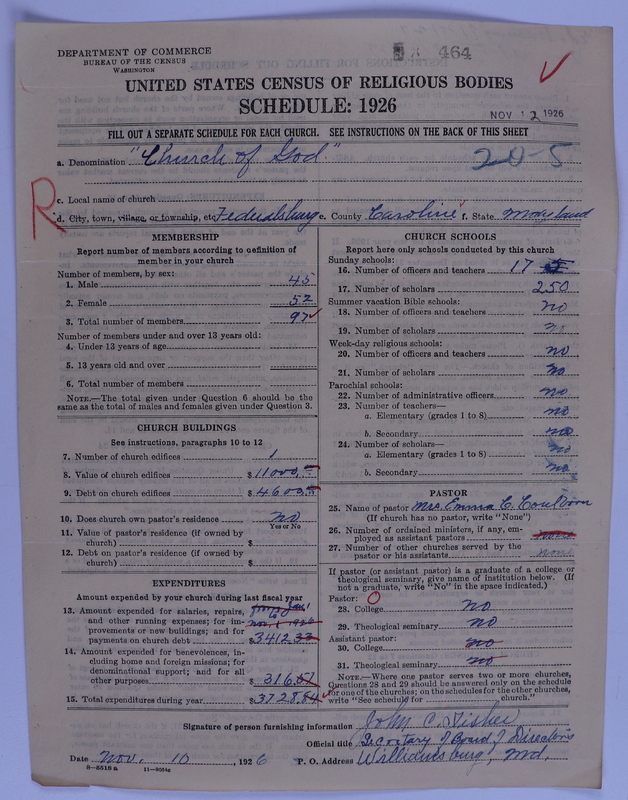 DEPARTMENT OF COMMERCE
BUREAU OF THE CENSUS
WASHINGTON
464
UNITED STATES CENSUS OF RELIGIOUS BODIES
SCHEDULE: 1926
NOV 12 1926
FILL OUT A SEPARATE SCHEDULE FOR EACH CHURCH. SEE INSTRUCTIONS ON THE BACK OF THIS SHEET
a. Denomination "Church of God"
20-5
c. Local name of church
R
d. City, town, village, or township, etc. Federalsburg e. County Caroline f. State Maryland
MEMBERSHIP
Report number of members according to definition of
member in your church
Number of members, by sex:
1. Male 45
2. Female 52
3. Total number of members 97
Number of members under and over 13 years old:
4. Under 13 years of age
5. 13 years old and over
6. Total number of members
NOTE.—The total given under Question 6 should be
same as the total of males and females given under Question 3.
CHURCH BUILDINGS
See instructions, paragraphs 10 to 12
7. Number of church edifices 1
8. Value of church edifices $11000.
9. Debt on church edifices $4600.
10. Does church own pastor's residence no
Yes or No
11. Value of pastor's residence (if owned by
church) $
12. Debt on pastor's residence (if owned by
church) $
EXPENDITURES
Amount expended by your church during last fiscal year
13. Amount expended for salaries, repairs,
and other running expenses; for im-
provements or new buildings; and for
payments on church debt $3412.33
14. Amount expended for benevolences, in-
cluding home and foreign missions; for
denominational support; and for all
other purposes $316.
15. Total expenditures during year $3728.84
CHURCH SCHOOLS
Report here only schools conducted by this church
Sunday schools:
16. Number of officers and teachers 17
17. Number of scholars 250
Summer vacation Bible schools:
18. Number of officers and teachers no
19. Number of scholars no
Week-day religious schools:
20. Number of officers and teachers no
21. Number of scholars no
Parochial schools:
22. Number of administrative officers no
23. Number of teachers—
a. Elementary (grades 1 to 8) no
b. Secondary no
24. Number of scholars—
a. Elementary (grades 1 to 8) no
b. Secondary no
PASTOR
25. Name of pastor Mrs. Emma C.
(If church has no pastor, write "None")
26. Number of ordained ministers, if any, em-
ployed as assistant pastors
27. Number of other churches served by the
pastor or his assistants none
If pastor (or assistant pastor) is a graduate of a college or
theological seminary, give name of institution below. (If
not a graduate, write "No" in the space indicated.)
Pastor:
28. College no
29. Theological seminary no
Assistant pastor:
30. College no
31. Theological seminary no
NOTE.—Where one pastor serves two or more churches,
Questions 28 and 29 should be answered only on the schedule
for one of the churches; on the schedules for the other churches,
write "See schedule for church."
Signature of person furnishing information John C. Fisher
Official title Secretary of Board of Directors
Date Nov. 10, 1926 P. O. Address Williamsburg, Md.
8-5518a 11-9064